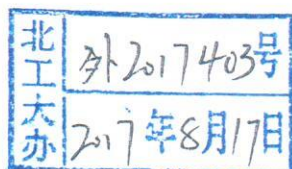 北工大办
外2017403号
2017年8月17日